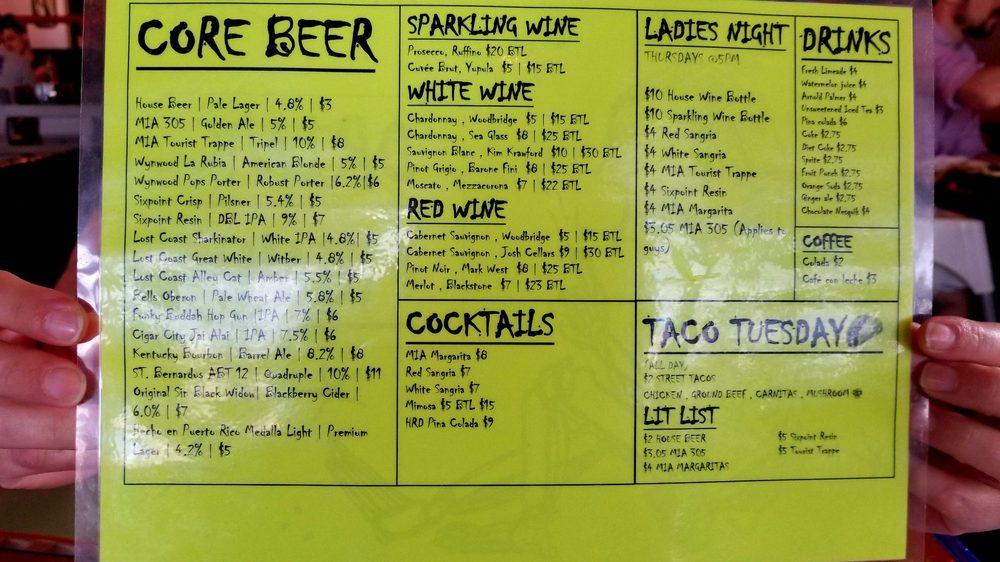 CORE BEER
House Beer | Pale Lager | 4.8% | $3
MIA 305 | Golden Ale | 5% | $5
MIA Tourist Trappe | Tripel | 10% | $8
Wynwood La Rubia | American Blonde | 5% | $5
Wynwood Pops Porter | Robust Porter |6.2%|$6
Sixpoint Crisp | Pilsner | 5.4% | $5
Sixpoint Resin | DBL IPA | 9% | $7
Lost Coast Sharkinator | White IPA |4.8%| $5
Lost Coast Great White | Witber | 4.8% | $5
Lost Coast Alley Cat | Amber | 5.5% | $5
Bells Oberon | Pale Wheat Ale | 5.8% | $5
Funky Buddah Hop Gun |IPA | 7% | $6
Cigar City Jai Alai | IPA | 7.5% | $6
Kentucky Bourbon | Barrel Ale | 8.2% | $8
ST. Bernardus ABT 12 | Quadruple | 10% | $11
Original Sin Black Widow| Blackberry Cider |
6.0% | $7
Hecho en Puerto Rico Medalla Light | Premium
Lager | 4.2% | $5
SPARKLING WINE
Prosecco, Ruffino $20 BTL
Cuvée Brut, Yupula $5 | $15 BTL
WHITE WINE
Chardonnay , Woodbridge $5 | $15 BTL
Chardonnay , Sea Glass $8 | $25 BTL
Sauvignon Blanc , Kim Krawford $10 | $30 BTL
Pinot Grigio , Barone Fini $8 | $25 BTL
Moscato , Mezzacorona $7 | $22 BTL
RED WINE
Cabernet Sauvignon , Woodbridge $5 | $15 BTL
Cabernet Sauvignon , Josh Cellars $9 | $30 BTL
Pinot Noir , Mark West $8 | $25 BTL
Merlot , Blackstone $7 | $23 BTL
COCKTAILS
MIA Margarita $8
Red Sangria $7
White Sangria $7
Mimosa $5 BTL $15
HRD Pina Colada $9
LADIES NIGHT
THURSDAYS @5PM
$10 House Wine Bottle
$10 Sparkling Wine Bottle
$4 Red Sangria
$4 White Sangria
$4 MIA Tourist Trappe
$4 Sixpoint Resin
$4 MIA Margarita
$3.05 MIA 305 (Applies to
guys)
DRINKS
Fresh Limeade $4
Watermelon juice $4
Arnold Palmer $4
Unsweetened Iced Tea $3
Pina colada $6
Coke $2.75
Diet Coke $2.75
Sprite $2.75
Fruit Punch $2.75
Orange Soda $2.75
Ginger ale $2.75
Chocolate Nesquik $4
COFFEE
Colada $2
Cafe con leche $3
TACO TUESDAY
*ALL DAY,
$2 STREET TACOS
CHICKEN , GROUND BEEF , CARNITAS , MUSHROOM
LIT LIST
$2 HOUSE BEER
$3.05 MIA 305
$4 MIA MARGARITAS
$5 Sixpoint Resin
$5 Tourist Trappe